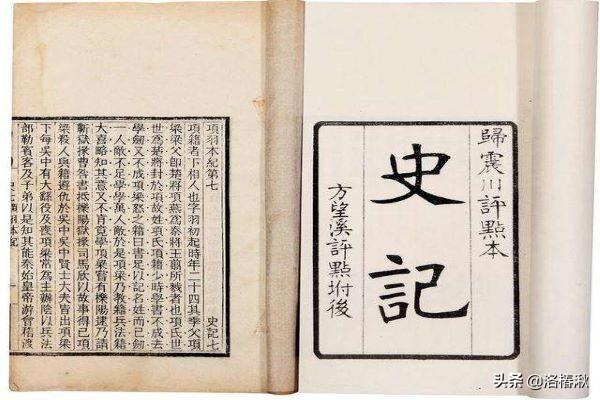 歸震川評點本
史記
方望溪評點坿後
項羽本紀第七 史記七
項籍者下相人也字羽初起時年二十四其季父項
梁梁父卽楚將項燕爲秦將王翦所戮者也項氏世
世爲楚將封於項故姓項氏項籍少時學書不成去
學劍又不成項梁怒之籍曰書足以記名姓而已劍
一人敵不足學學萬人敵於是項梁乃教籍兵法籍
大喜略知其意又不肯竟學項梁嘗有櫟陽逮乃請
蘄獄掾曹咎書抵櫟陽獄掾司馬欣以故事得已項
梁殺人與籍避仇於吳中吳中賢士大夫皆出項梁
下每吳中有大繇役及喪項梁常爲主辦陰以兵法
部勒賓客及子弟以是知其能秦始皇帝游會稽渡
头条 @洛椿秋